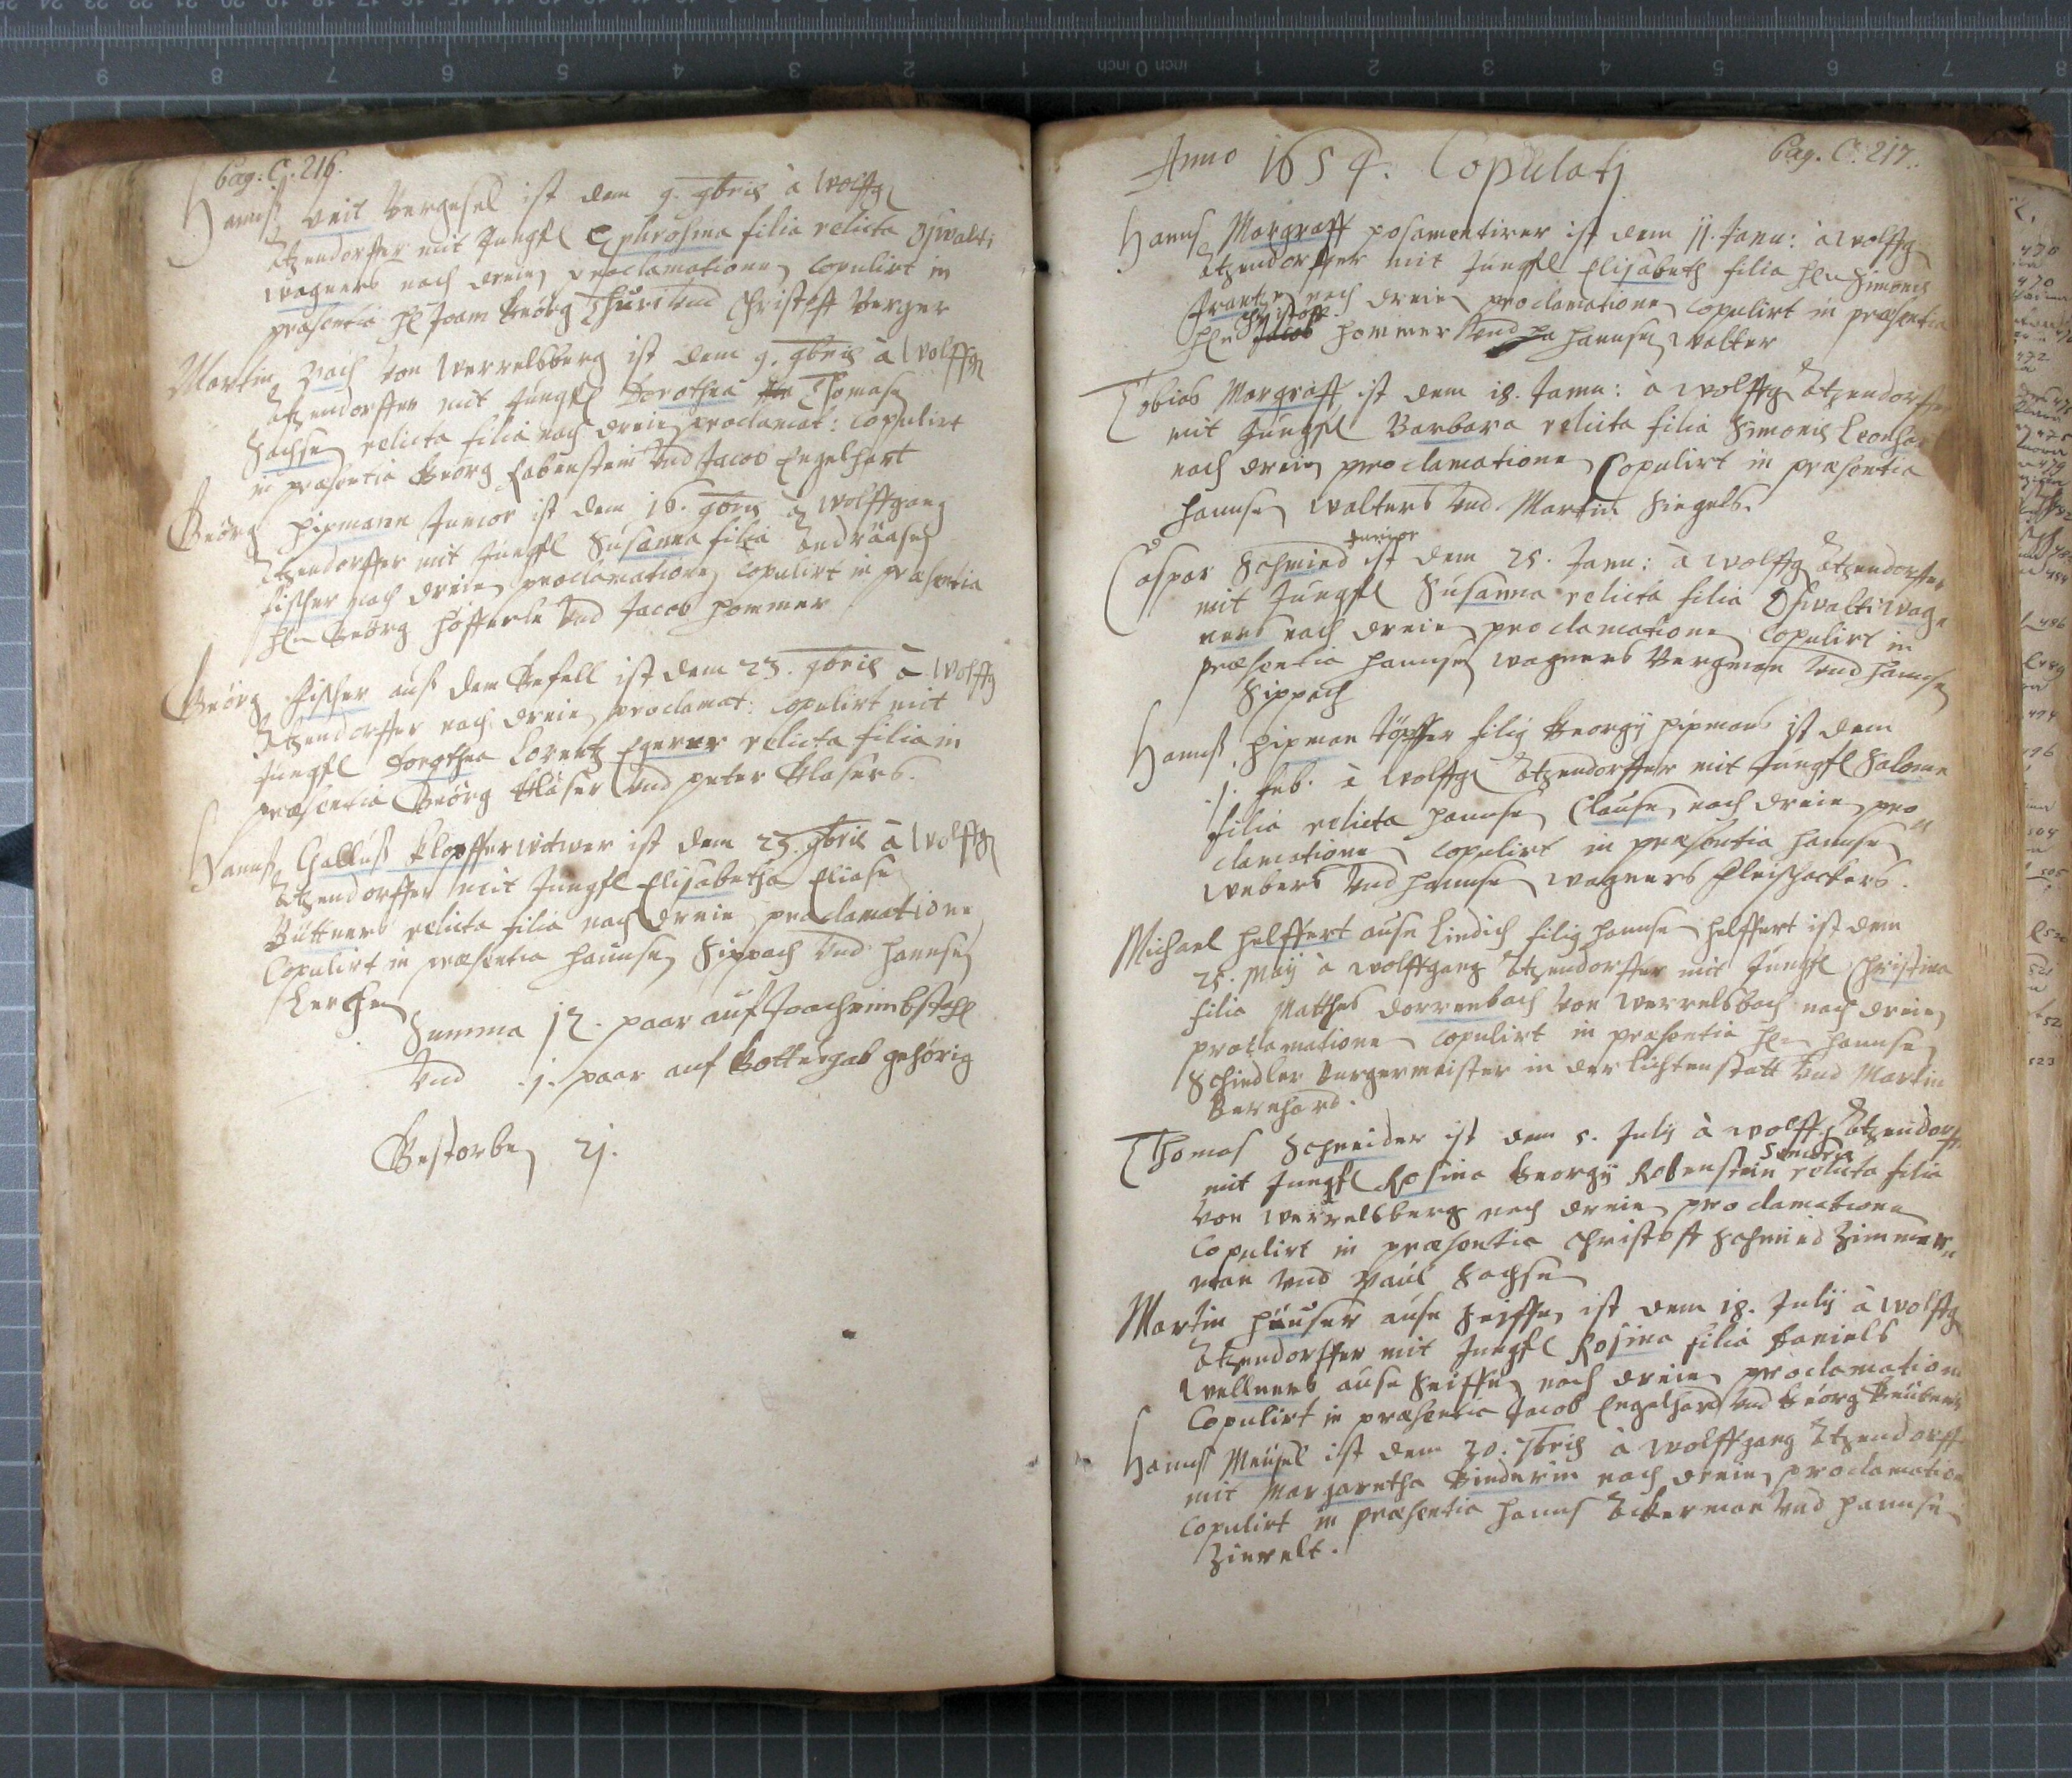 Pag. C. 216.
Hannß Veit Bergesel ist dem 9. 9bris à Wolffg
Atzendorffer mit Jungfl Ephrosina filia relicta Oswalti
Wagners nach dreien proclamationen copulirt in
præsentia Hl Joam Geörg Thuri Vnd Christoff Berger
Martin Bach von Werrelsberg ist dem 9. 9bris à Wolffg
Atzendorffer mit Jungfl Dorothea Thomasen
Sachsen relicta filia nach dreien proclamat: copulirt
in præsentia Georg Rabenstein Vnd Jacob Engelhart
Geörg Hipmann Junior ist dem 16. 9bris à Wolffgang
Atzendorffer mit Jungfl Susanna filia Andräasen
Fischer nach dreien proclamationen copulirt in præsentia
Hln Geörg Höfferle Vnd Jacob Hommer
Geörg Fischer auß dem Gefell ist dem 23. 9bris à Wolffg
Atzendorffer nach dreien proclamat: copulirt mit
Jungfl Dorothea Lorentz Egerer relicta filia in
præsentia Geörg Gläser Vnd Peter Glasers.
Hannß Galluß Klopffer Witwer ist dem 23. 9bris à Wolffg
Atzendorffer mit Jungfl Elisabetha Eliasen
Büttners relicta filia nach dreien proclamationen
Copulirt in præsentia Hannsen Sippach Vnd Hannsen
Lerchen
Summa 12. paar auf Joachimbstahl
Vnd .1. paar auf Gottesgab gehörig
Gestorben 21.
Anno 1654. Copulatj
Pag. C. 217.
Hannß Margraff posamentirer ist dem 11. Janu: à Wolffg
Atzendorffer mit Jungfl Elisabeth filia Hln Simonis
Frantzen nach dreien proclamationen copulirt in præsentia
Christoff
Hln Jacob Hommer Vnd Hannsen Walter
Tobias Margraff ist dem 18. Janu: à Wolffg Atzendorffer
mit Jungfl Barbara relicta filia Simonis Leonhart
nach dreien proclamationen Copulirt in præsentia
Hannsen Walters Vnd Martin Siegels.
Junior
Caspar Schmied ist dem 25. Janu: à Wolffg Atzendorffer
mit Jungfl Susanna relicta filia Oswalti Wag-
ners nach dreien proclamationen copulirt in
præsentia Hannsen Wagners Bergman Vnd Hannsen
Sippach
Hannß Hipman töpffer filij Georgij Hipmans ist dem
.1. Feb. à Wolffg Atzendorffer mit Jungfl Salome
filia relicta Hannsen Clausen nach dreien pro
clamationen copulirt in præsentia Hannsen
Webers Vnd Hannsen Wagners Fleischackers.
Michael Helffert ausn Lindich filij Hannsen Helffert ist dem
25. Maij à Wolffgang Atzendorffer mit Jungfl Christina
filia Matthes Dorrenbach von Werrelsbach nach dreien
proclamationen copulirt in præsentia Hln Hannsen
Schindler burgermeister in der lichtenstatt Vnd Martin
Bernhard.
Thomas Schneider ist dem 5. Julij à Wolffg Atzendorff
Senioren
mit Jungfl Rosina Georgij Robenstein relicta filia
von Werrelsberg nach dreien proclamationen
Copulirt in præsentia Christoff Schmied Zimmer-
man Vnd Paul Sachsen
Martin Häuser ausn Seiffen ist dem 18. Julij à Wolffg
Atzendorffer mit Jungfl Rosina filia Daniels
Wellners ausn Seiffen nach dreien proclamation
Copulirt in præsentia Jacob Engelhard Vnd Geörg Gräbners
Hannß Meüsel ist dem 20. 7bris à Wolffgang Atzendorff
mit Margaretha Binderin nach dreien proclamation
copulirt in præsentia Hannß Ackerman Vnd Hannsen
Zinwelt.